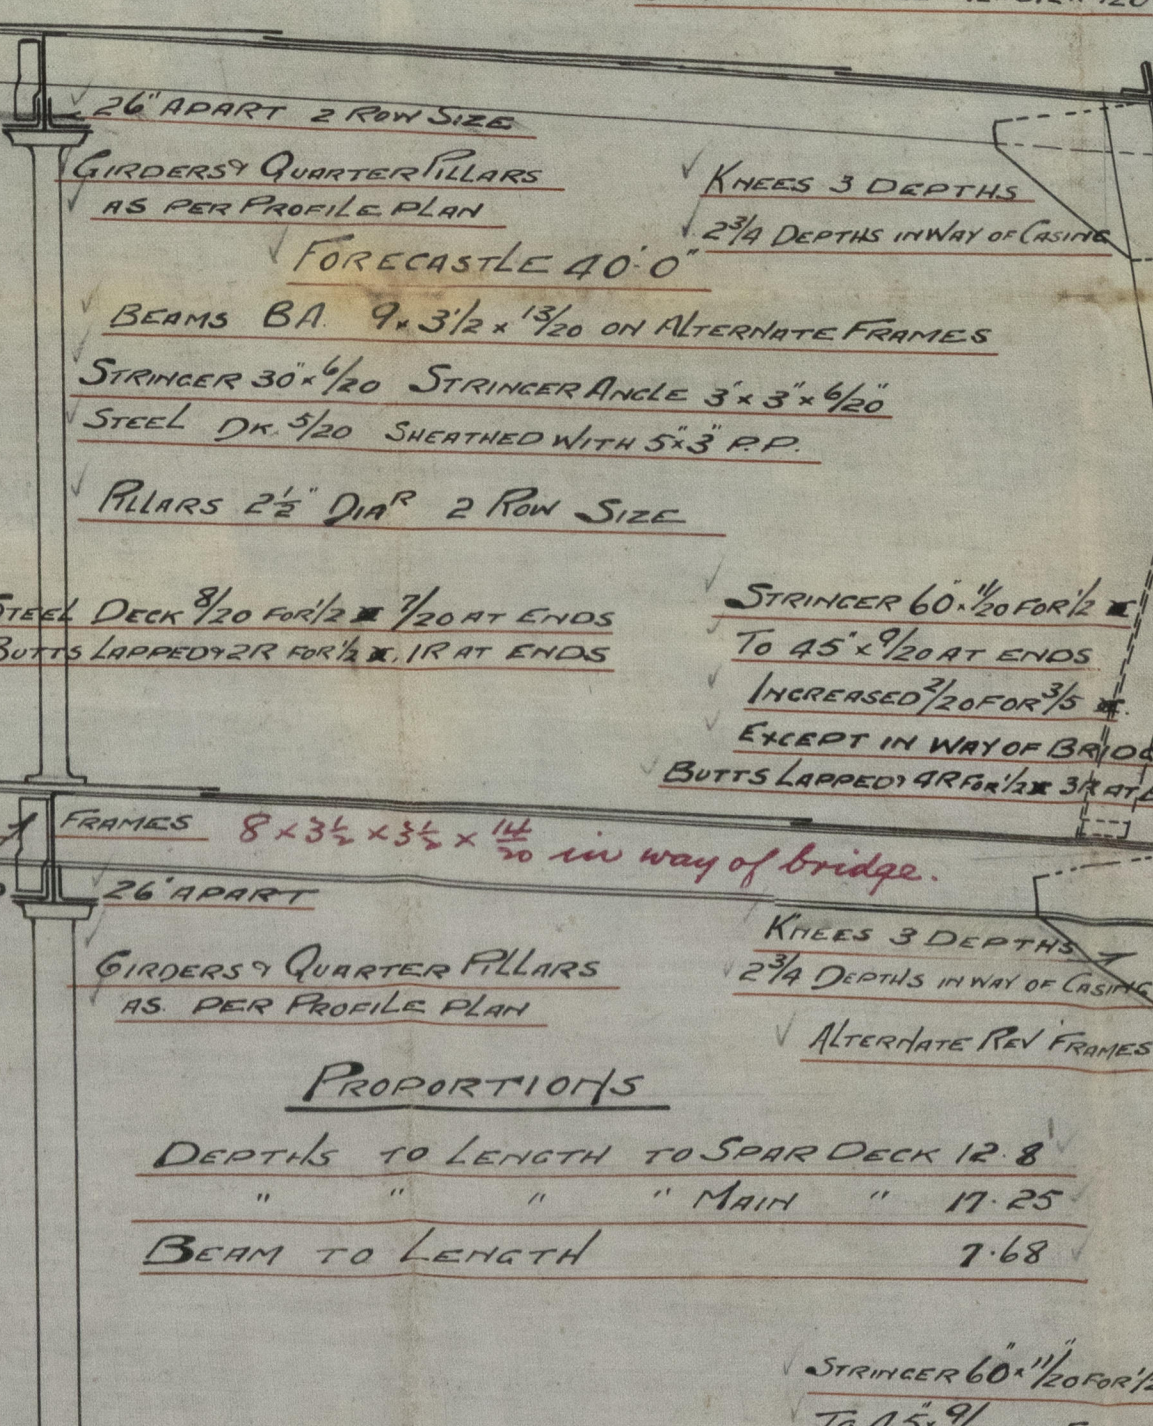 26" APART 2 ROW SIZE
GIRDERS & QUARTER PILLARS
AS PER PROFILE PLAN
KNEES 3 DEPTHS
2 3/4 DEPTHS IN WAY OF CASING
FORECASTLE 40'·0"
BEAMS BA. 9 x 3 1/2 x 13/20 ON ALTERNATE FRAMES
STRINGER 30" x 6/20 STRINGER ANGLE 3" x 3" x 6/20"
STEEL DK. 5/20 SHEATHED WITH 5" x 3" P.P.
PILLARS 2 1/2" DIAR 2 ROW SIZE
STEEL DECK 8/20 FOR 1/2 7/20 AT ENDS
BUTTS LAPPED & 2R FOR 1/2 , 1R AT ENDS
STRINGER 60" x 11/20 FOR 1/2
TO 45" x 9/20 AT ENDS
INCREASED 2/20 FOR 3/5
EXCEPT IN WAY OF
BUTTS LAPPED & 4R FOR 1/2 3R AT
FRAMES 8 x 3 1/2 x 3 1/2 x 14/20 in way of bridge.
26" APART
GIRDERS & QUARTER PILLARS
AS. PER PROFILE PLAN
KNEES 3 DEPTHS
2 3/4 DEPTHS IN WAY OF CASING
ALTERNATE REV FRAMES
PROPORTIONS
DEPTHS TO LENGTH TO SPAR DECK 12·8
" " " " MAIN " 17·25
BEAM TO LENGTH 7·68
STRINGER 60" x 11/20 FOR 1/2
TO 45" x 9/